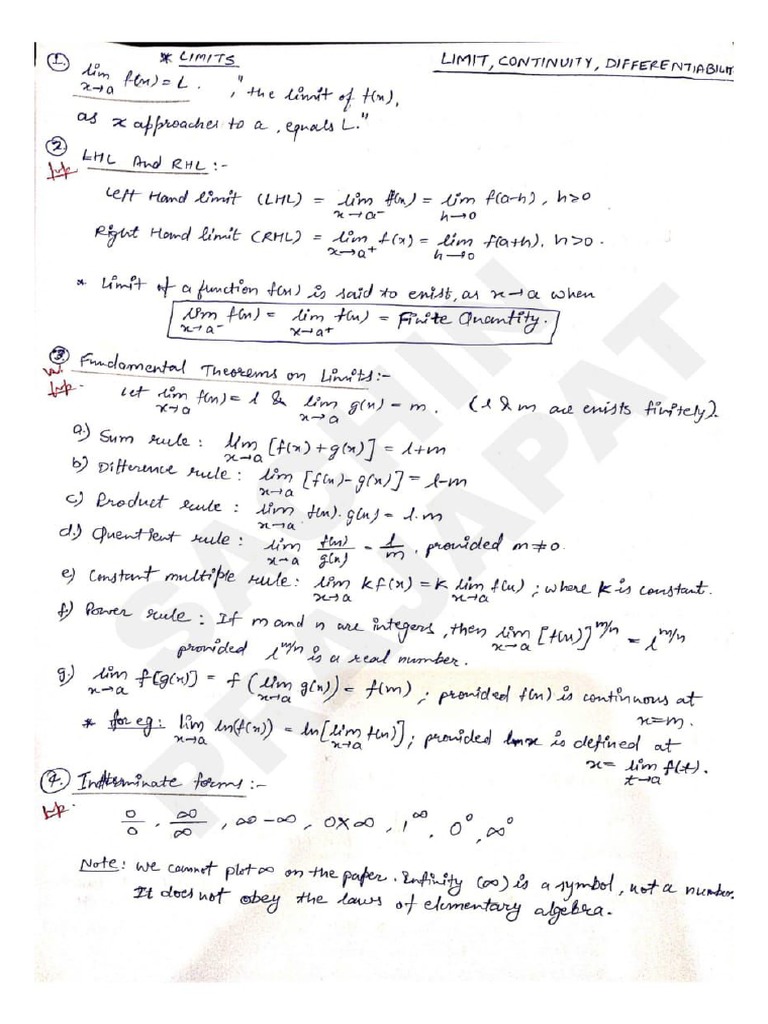 * LIMITS
LIMIT, CONTINUITY, DIFFERENTIABILIT
1. lim x→a f(x) = L. "the limit of f(x),
as x approaches to a, equals L."
2. LHL And RHL :-
Imp
Left Hand limit (LHL) = lim x→a⁻ f(x) = lim h→0 f(a-h), h>0
Right Hand limit (RHL) = lim x→a⁺ f(x) = lim h→0 f(a+h). h>0.
* Limit of a function f(x) is said to exist, as x→a when
lim x→a⁻ f(x) = lim x→a⁺ f(x) = Finite Quantity.
3. Fundamental Theorems on Limits:-
V. Imp.
Let lim x→a f(x) = l & lim x→a g(x) = m. (l & m are exists finitely).
a.) Sum rule : lim x→a [f(x)+g(x)] = l+m
b) Difference rule : lim x→a [f(x)-g(x)] = l-m
c) Product rule : lim x→a f(x).g(x) = l.m
d.) Quentient rule : lim x→a f(x)/g(x) = l/m. provided m≠0.
e) Constant multiple rule: lim x→a kf(x) = k lim x→a f(x) ; where k is constant.
f) Power rule : If m and n are integers, then lim x→a [f(x)]^m/n = l^m/n
provided l^m/n is a real number.
g.) lim x→a f[g(x)] = f(lim x→a g(x)) = f(m) ; provided f(x) is continuous at
x=m.
* for eg: lim x→a ln(f(x)) = ln[lim x→a f(x)] ; provided lnx is defined at
x = lim t→a f(t).
4. Indterminate forms :-
Imp.
0/0, ∞/∞, ∞-∞, 0×∞, 1^∞, 0⁰, ∞⁰
Note : We cannot plot ∞ on the paper. Infinity (∞) is a symbol, not a number.
It does not obey the laws of elementary algebra.
SACHIN
PRAJAPAT